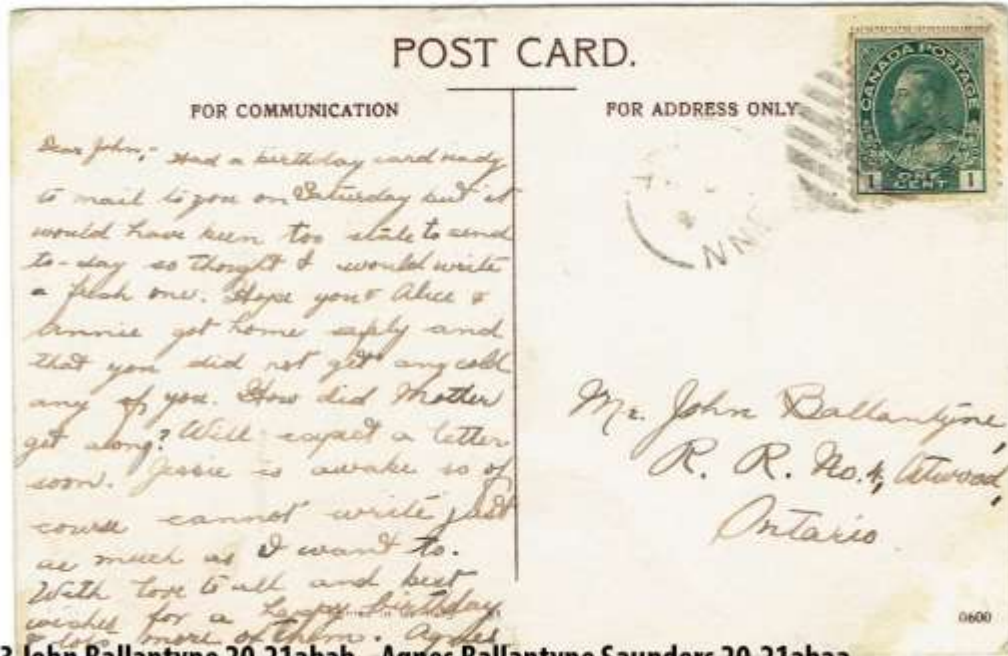 POST CARD.
FOR COMMUNICATION
FOR ADDRESS ONLY
CANADA POSTAGE
1 ONE CENT 1
NNE
Dear John,- Had a birthday card ready
to mail to you on Saturday but it
would have been too stale to send
to-day so thought I would write
a fresh one. Hope you & Alice &
Annie got home safely and
that you did not get any cold
any of you. How did Mother
get along? Will expect a letter
soon. Jessie is awake so of
course cannot write just
as much as I want to.
With love to all and best
wishes for a happy birthday
& lots more of them. Agnes
Mr. John Ballantyne,
R. R. No. 4, Atwood,
Ontario
0600
3 John Ballantyne 20-21abab - Agnes Ballantyne Saunders 20-21abaa